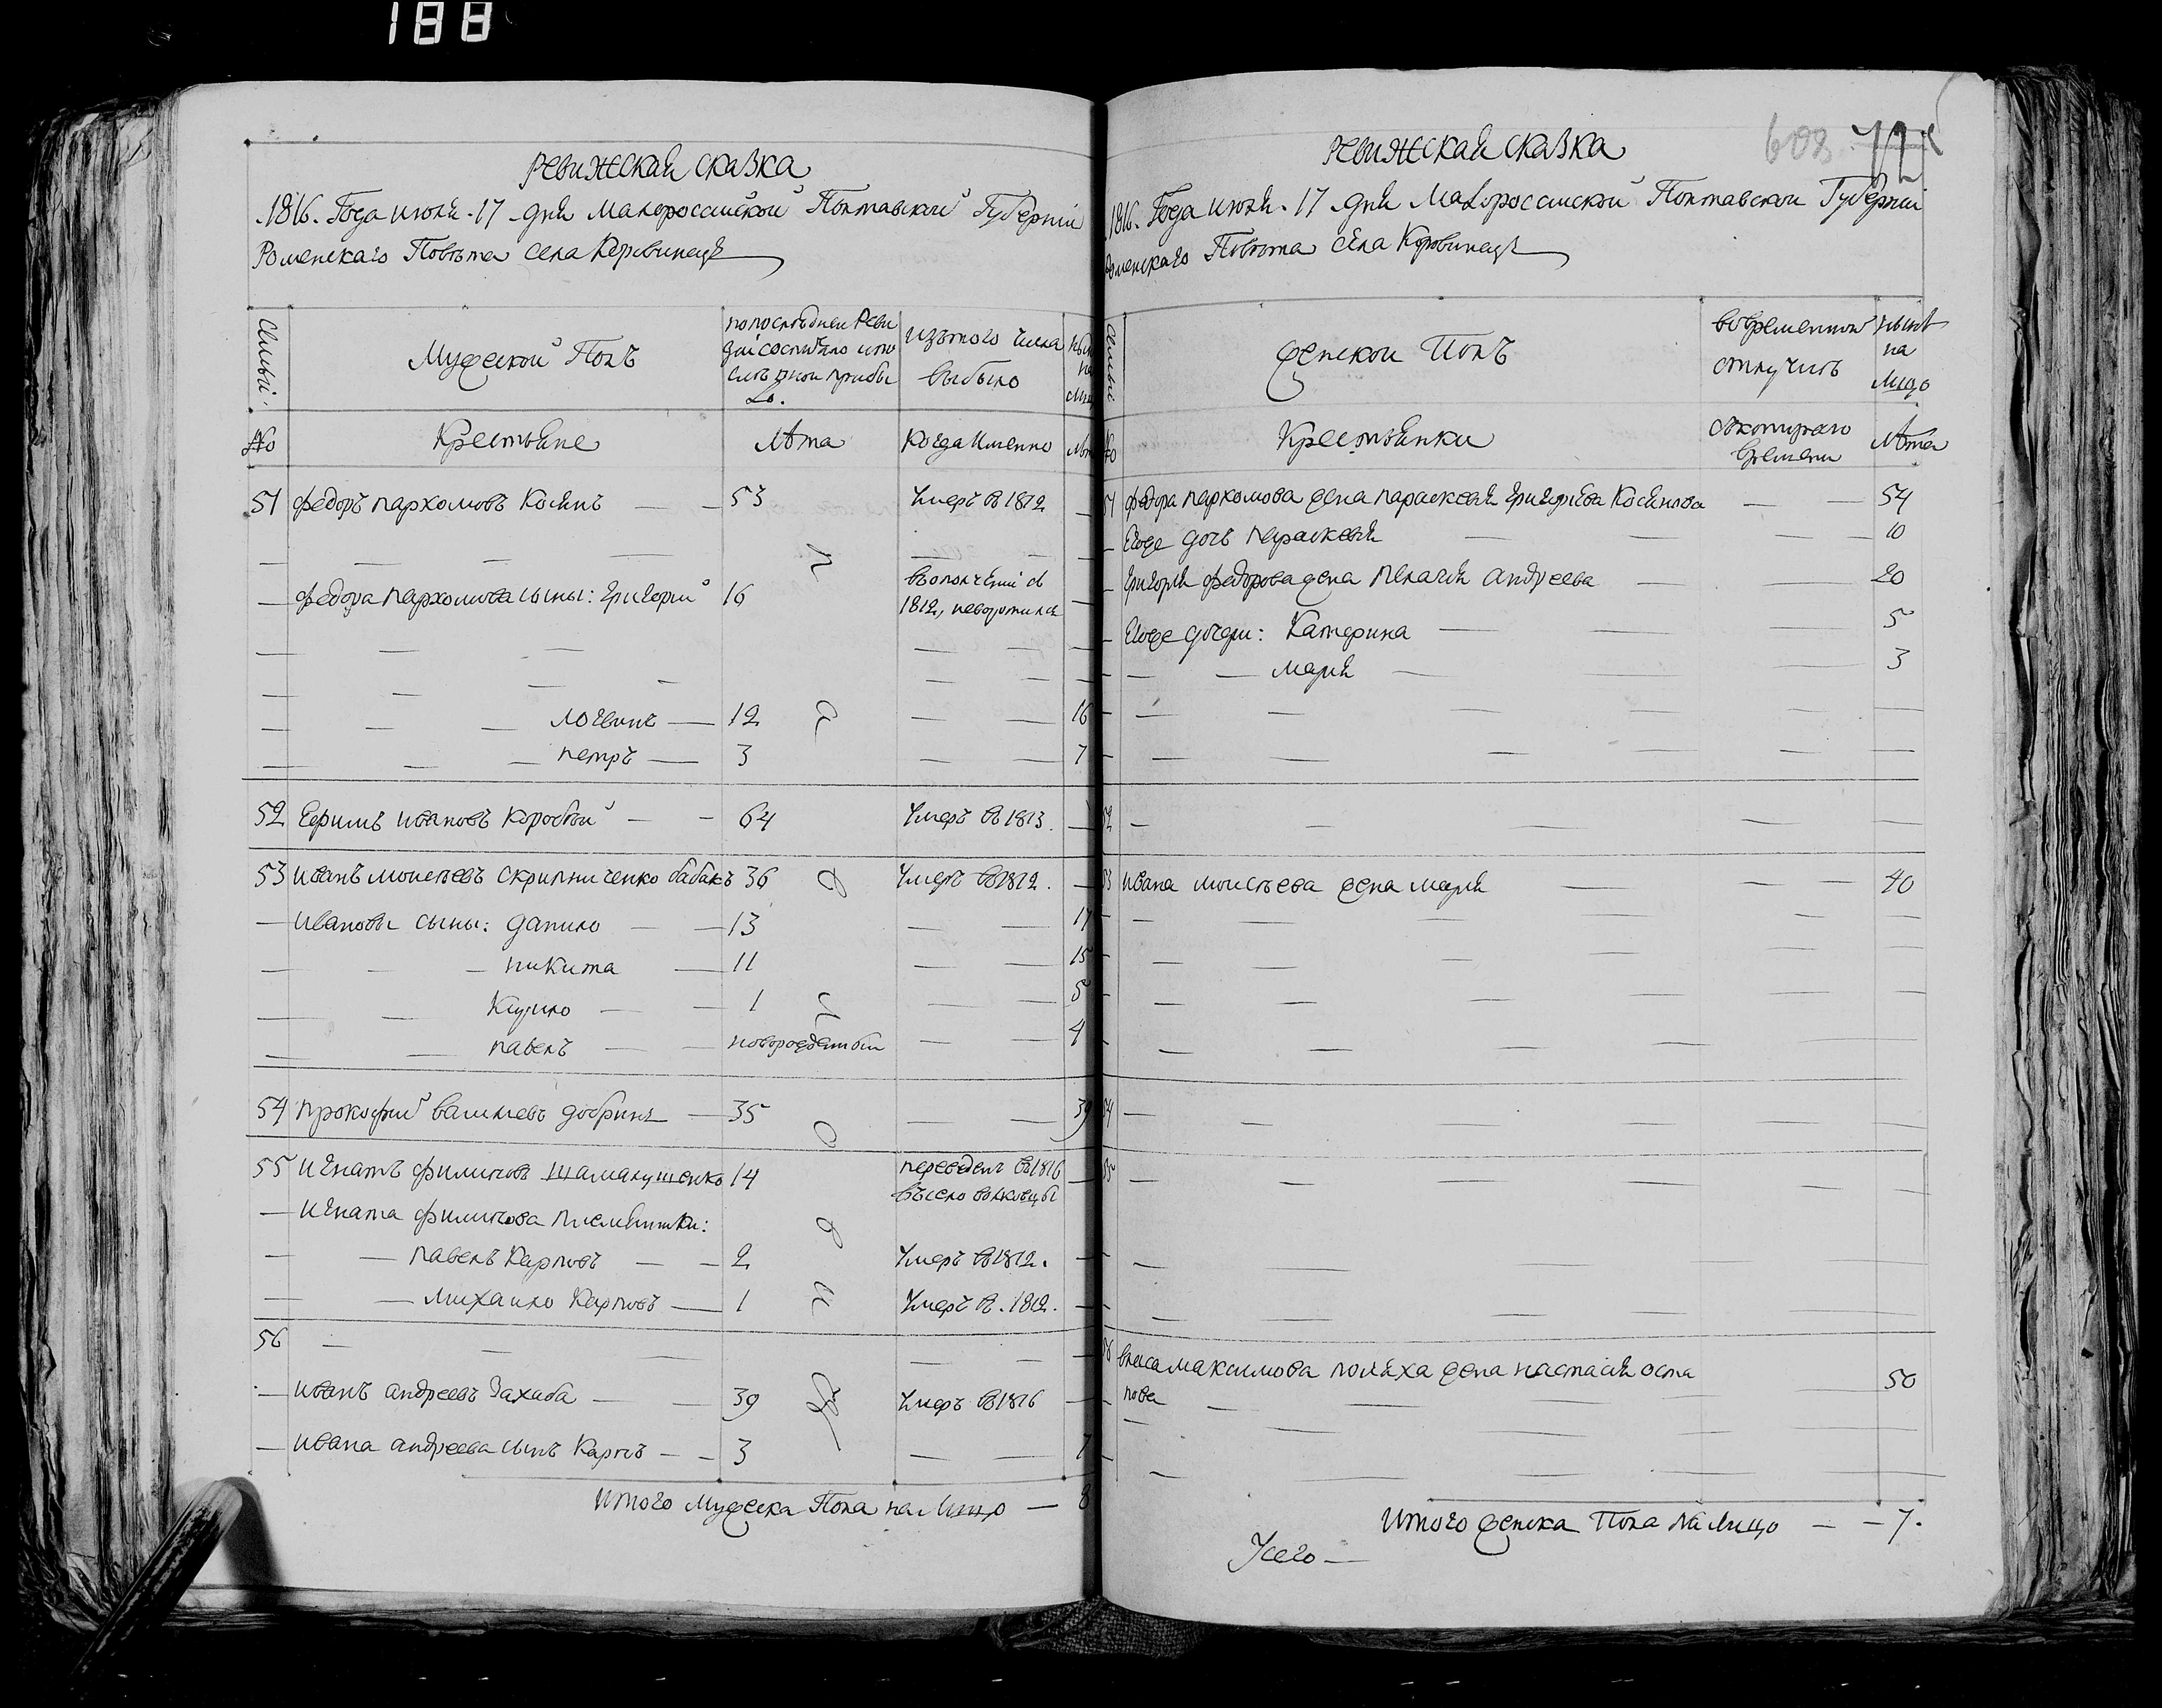 188
Ревижская сказка
1816. Года июля 17 дня Малороссийской Полтавской Губернии
Роменскаго Повѣта села Коровинецъ
Семьи
Мужеской Полъ
по последней Реви
зии состояло и по
слѣ оной прибы
ло.
изъ того числа
выбыло
ныне
на
лицо
№
Крестьяне
Лѣта
Когда именно
Лѣта
51 Федоръ пархомовъ Косянъ — 53 Умеръ в 1812 —
Федора пархомова сыны: Григорий 16 в ополчении с
1812, невозвратился
Логвинъ — 12 — — 16
петръ — 3 — — 7
52 Ефимъ ивановъ Коробой — 64 Умеръ в 1813. —
53 иванъ моисеевъ скрипниченко бабакъ 36 Умеръ в 1812. —
Ивановы сыны: данило — 13 — — 17
никита — 11 — — 15
Кирило — 1 — — 5
павелъ — новорожденный — — 4
54 прокофий васильевъ добринь — 35 — — 39
55 игнатъ филиповъ шамалущенко 14 переведенъ в 1816
въ село волковцы
Игната филипова племянники:
павелъ Карповъ — 2 Умеръ в 1812. —
Михаило Карповъ — 1 Умеръ в. 1812. —
56
иванъ андреевъ Захаба — 39 Умеръ в 1816 —
ивана андреева сынъ Карпъ — 3 — — 7
итого мужеска Пола на лицо — 8
608
Ревижская сказка
1816. Года июля 17 дня Малороссийской Полтавской Губернии
Роменскаго Повѣта села Коровинецъ
Семьи
Женской Полъ
во временной
отлучиѣ
ныне
на
лицо
№
Крестьянки
съ котораго
времени
Лѣта
51 Федора пархомова жена параскевия григорьева Косянова — 54
Егоже дочь параскевия — 10
Григория федорова жена пелагия андреева — 20
Егоже дочери: Катерина — 5
мария — 3
52
53 ивана моисеева жена мария — 40
54
55
56 власа максимова поляха жена настасия оста
пова 50
Итого женска Пола на лицо — 7.
Усего —